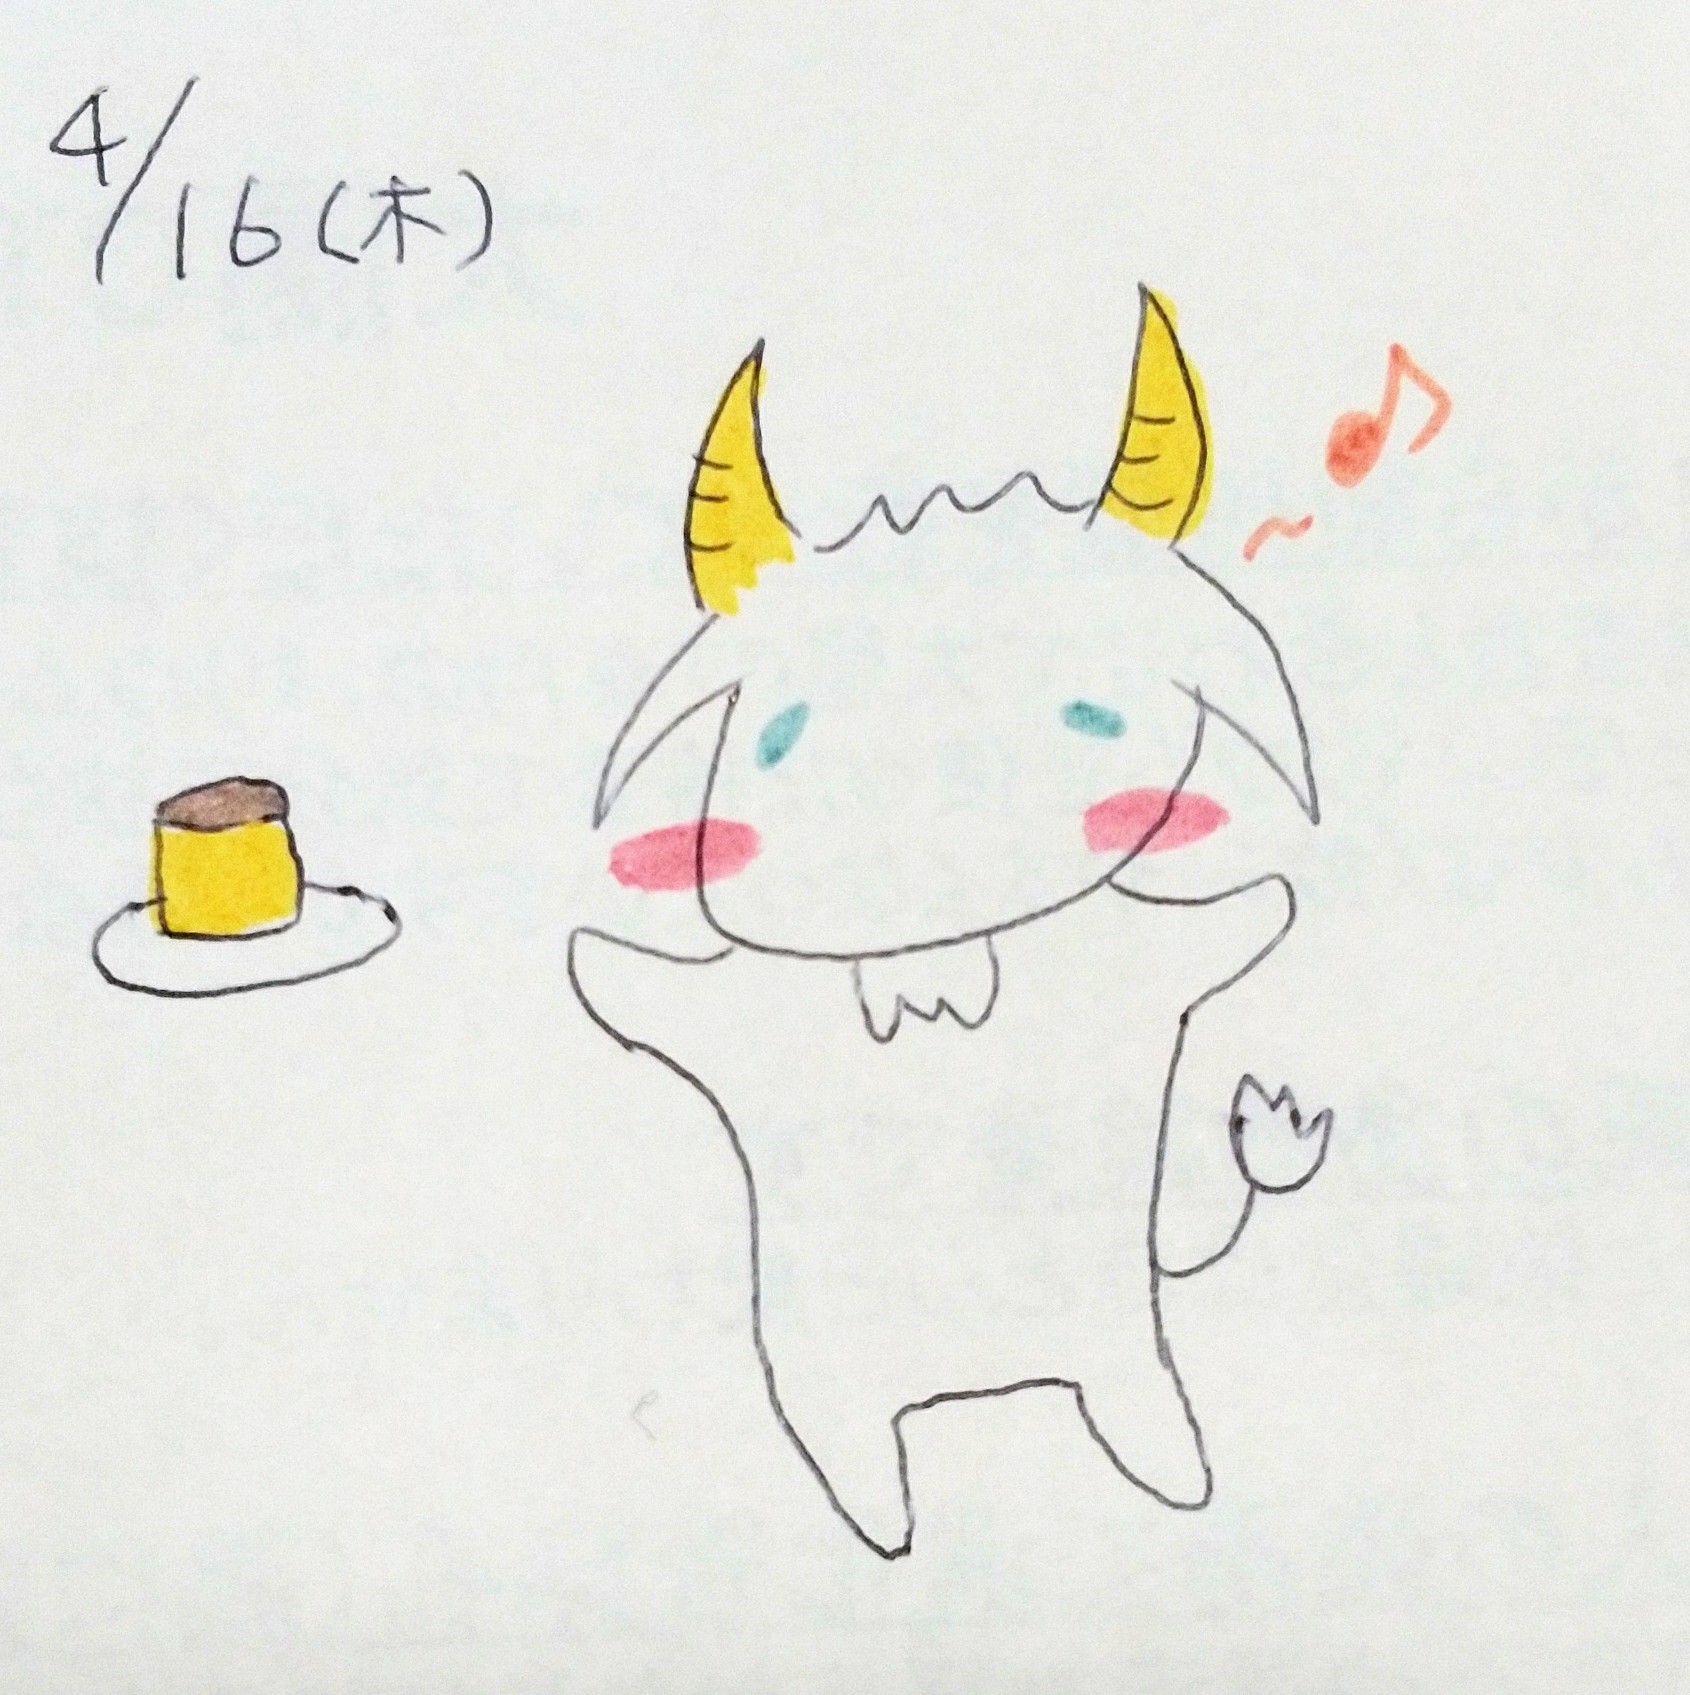 4/16(木)